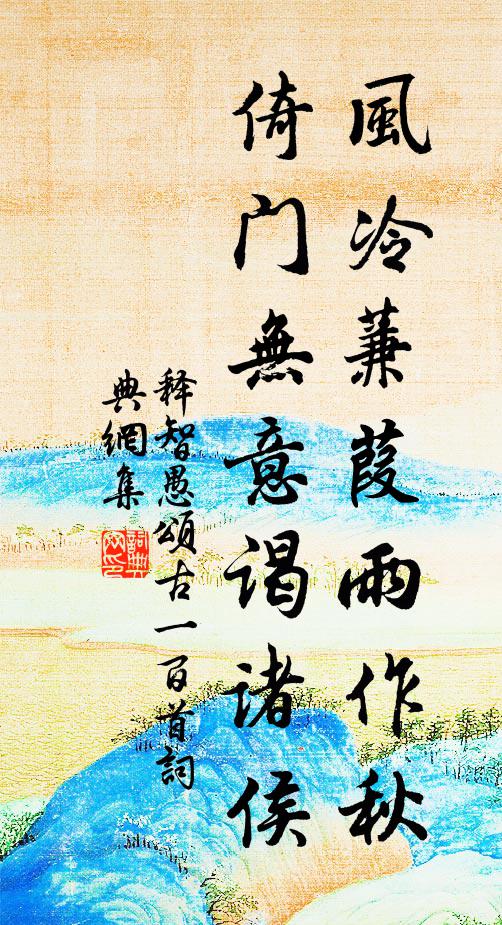 風冷蒹葭雨作秋
倚门無意谒诸侯
释智愚頌古一百首詞
典網集
詞典
网印